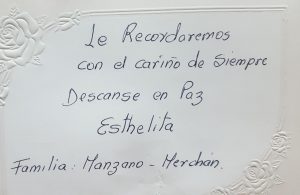 Le Recordaremos
con el cariño de Siempre
Descanse en Paz
Esthelita
Familia: Manzano - Merchán.